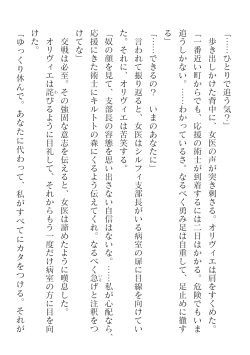 「……ひとりで追う気？」
歩き出しかけた背中に、女医の声が突き刺さる。オリヴィエは肩をすくめた。
「一番近い町からでも、応援の術士が到着するには二日はかかる。危険でもいま
追うしかない。……わかっているさ。なるべく勇み足は自重して、足止めに徹す
る」
「……できるの？　いまのあなたに」
言われて振り返ると、女医はシルフィ支部長がいる病室の扉に目線を向けてい
た。それに、オリヴィエは苦笑する。
「奴の顔を見て、支部長の容態を思い出さない自信はないな。……私が心配なら、
応援にきた術士にキルトトの森にくるよう伝えてくれ。なるべく急げと注釈をつ
けてな」
交戦は必至。その強固な意志を伝えると、女医は諦めたように嘆息した。
オリヴィエは詫びるように目礼して、それからもう一度だけ病室の方に目を向
けた。
「ゆっくり休んで。あなたに代わって、私がすべてにカタをつける。それが